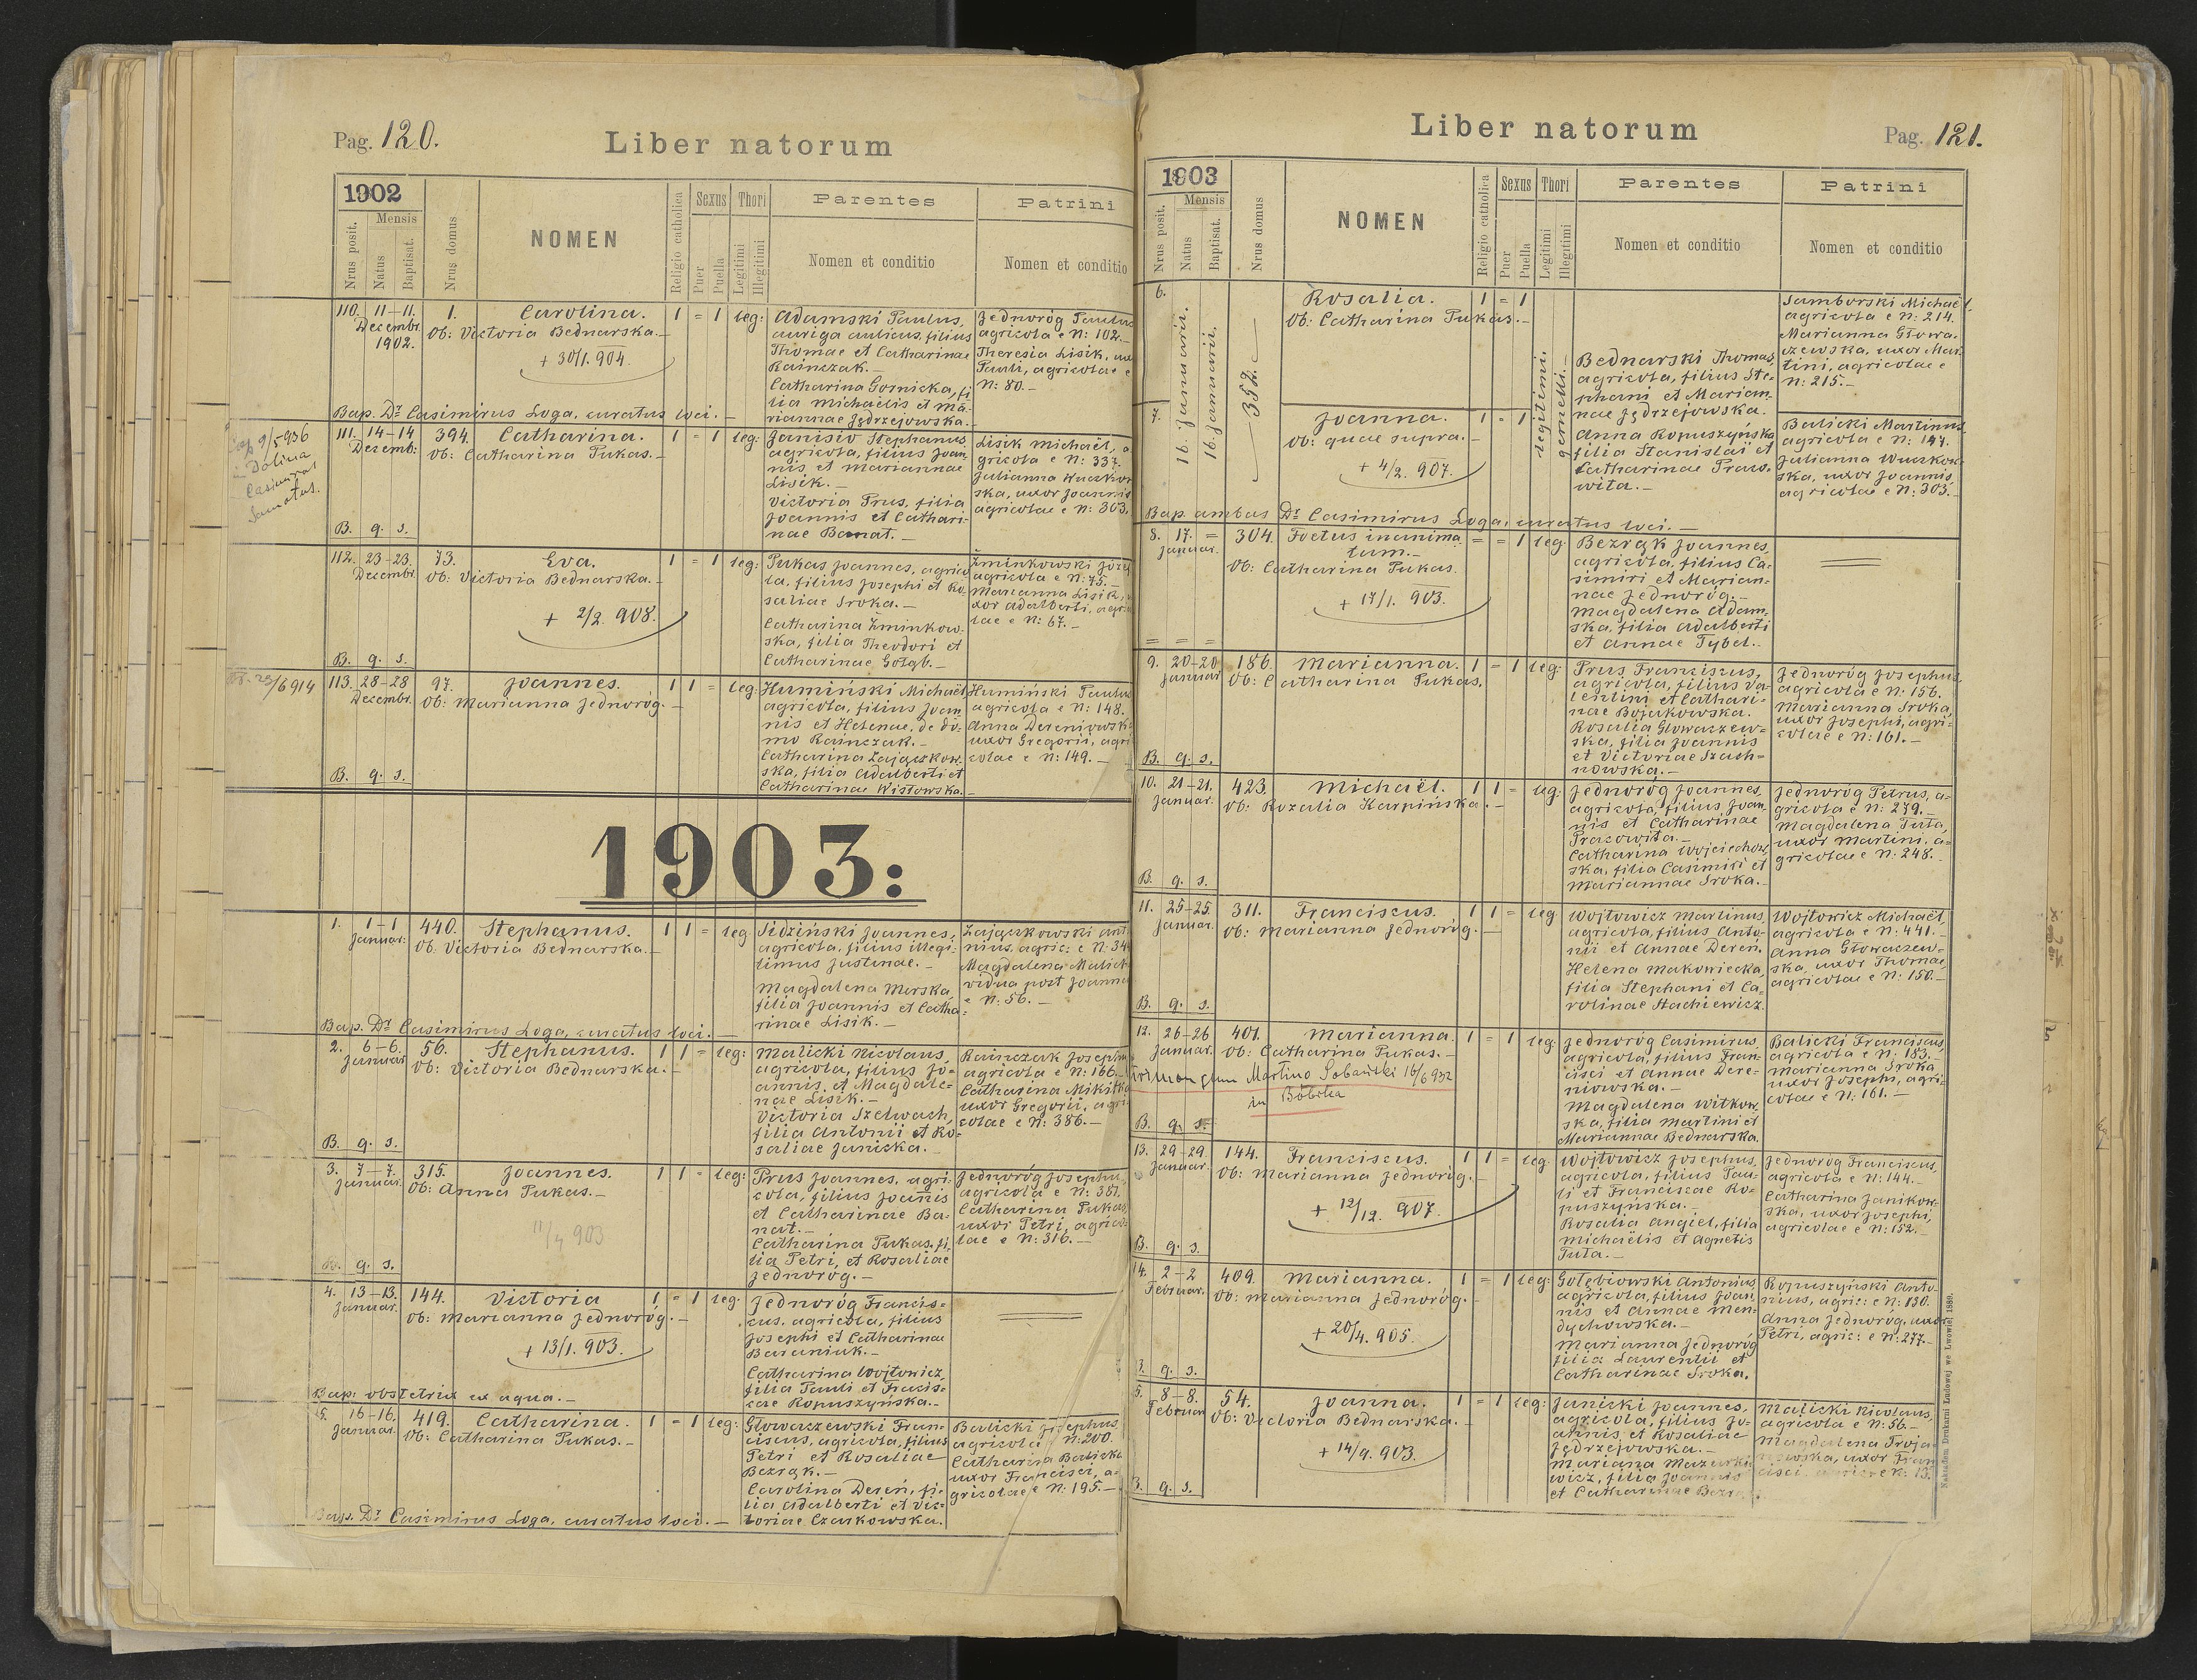 Pag. 120.
Liber natorum
1902
Nrus posit.
Mensis
Natus
Baptisat.
Nrus domus
NOMEN
Religio catholica
Sexus
Puer
Puella
Thori
Legitimi
Illegitimi
Parentes
Nomen et conditio
Patrini
Nomen et conditio
110. 11-11. 1. Carolina. 1 = 1 leg:
Decembr.
1902.
Ob: Victoria Bednarska.-
+ 30/1. 904.
Adamski Paulus,
auriga aulicus, filius
Thomae et Catharinae
Rainczak.-
Catharina Gornicka, fi
lia Michaëlis et Ma-
riannae Jędrzejowska.-
Jednoróg Paulus
agricola e N: 102.-
Theresia Lisik, ux
Pauli, agricolae e
N: 80.-
Bap. Dr Casimirus Loga, curatus loci.-
9/5 936
in Dolina
111. 14-14 394. Catharina. 1 = 1 leg:
Decemb:
Ob: Catharina Pukas.-
Janisiv Stephanus
agricola, filius Joan
nis et Mariannae
Lisik.-
Victoria Prus, filia
Joannis et Cathari-
nae Banat.-
Lisik Michaël, a
gricola e N: 337.
Julianna Kuczkow
ska, uxor Joannis
agricolae e N: 303.
B. q. s.
112. 23-23. 73. Eva. 1 = 1 leg:
Decembr.
Ob: Victoria Bednarska.-
+ 2/2. 908.
Pukas Joannes, agrico
la, filius Josephi et Ro-
saliae Sroka.-
Catharina Żminkow-
ska, filia Theodori et
Catharinae Gołąb.-
Żminkowski Józef
agricola e N: 75.-
Marianna Lisik, u
xor Adalberti, agri
lae e N: 67.-
B. q. s.
23/6 914
113. 28-28 97. Joannes. 1 1 = leg:
Decembr.
Ob: Marianna Jednoróg.-
Humiński Michaël
agricola, filius Joan
nis et Helenae, de do-
mo Rainczak.-
Catharina Zajączkow-
ska, filia Adalberti et
Catharinae Wisłowska.-
Humiński Paulus
agricola e N: 148.
Anna Dereniowska
uxor Gregorii, agri
colae e N: 149.-
B. q. s.
1903:
1. 1-1 440. Stephanus. 1 1 = leg.
Januar:
Ob. Victoria Bednarska.-
Sidziński Joannes,
agricola, filius illegi-
timus Justinae.-
Magdalena Morska
filia Joannis et Catha-
rinae Lisik.-
Zajączkowski Ant
nius, agric: e N: 34
Magdalena Malick
vidua post Joanne
e N: 56.-
Bap. Dr Casimirus Loga, curatus loci.-
2. 6-6. 56. Stephanus. 1 1 = leg:
Januar
Ob: Victoria Bednarska.-
Malicki Nicolaus,
agricola, filius Jo-
annis, et Magdale-
nae Lisik.-
Victoria Szelwach,
filia Antonii et Ro-
saliae Janicka.-
Rainczak Joseph
agricola e N: 166.-
Catharina Mikitka
uxor Gregorii, agri
colae e N: 386.-
B. q. s.
3. 7-7. 315. Joannes. 1 1 = leg:
Januar.
Ob: Anna Pukas.-
11/4 903
Prus Joannes, agri
cola, filius Joannis
et Catharinae Ba-
nat.-
Catharina Pukas, fi
lia Petri, et Rosaliae
Jednoróg.-
Jednoróg Josephu
agricola e N: 381.
Catharina Pukas
uxor Petri, agrico
lae e N: 316.-
B. q. s.
4. 13-13. 144. Victoria 1 = 1 leg.
Januar.
Ob: Marianna Jednoróg.-
+ 13/1. 903.
Jednoróg Francis-
cus, agricola, filius
Josephi et Catharinae
Baraniuk.-
Catharina Wojtowicz
filia Pauli et Francis-
cae Ropuszyńska.-
Bap: obstetrix ex aqua.-
5. 16-16. 419. Catharina. 1 = 1 leg:
Januar.
Ob: Catharina Pukas.-
Głowaczewski Fran-
ciscus, agricola, filius
Petri et Rosaliae
Bezrąk.-
Carolina Dereń, fi-
lia Adalberti et Vic-
toriae Czarkowska.
Balicki Josephus
agricola N: 200.
Catharina Balicka
uxor Francisci, a-
gricolae e N: 195.-
Bap. Dr Casimirus Loga, curatus loci.-
Liber natorum
Pag. 121.
1903
Nrus posit.
Mensis
Natus
Baptisat.
Nrus domus
NOMEN
Religio catholica
Sexus
Puer
Puella
Thori
Legitimi
Illegitimi
Parentes
Nomen et conditio
Patrini
Nomen et conditio
6. Rosalia. 1 = 1
Ob: Catharina Pukas.-
16. Januarii.
16. Januarii.
352.
legitimi,
gemelli.-
Bednarski Thomas,
agricola, filius Ste-
phani et Marian-
nae Jędrzejowska.
Anna Ropuszyńska
filia Stanislai et
Catharinae Praco-
wita.-
Samborski Michaël,
agricola e N: 214.
Marianna Głowa-
czewska, uxor Mar-
tini, agricolae e
N: 215.-
7. Joanna. 1 = 1
Ob: quae supra.-
+ 4/2. 907.
Balicki Martinus
agricola e N: 147.
Julianna Kuczkow-
ska, uxor Joannis
agricolae e N: 303.-
Bap. ambas Dr Casimirus Loga, curatus loci.-
8. 17. = 304. Foetus inanima = = 1 leg:
Januar. tum.-
Ob: Catharina Pukas.
+ 17/1. 903.
Bezrąk Joannes,
agricola, filius Ca-
simiri et Marian-
nae Jednoróg.-
Magdalena Adam-
ska, filia Adalberti
et Annae Tybel.-
9. 20-20 186. Marianna. 1 = 1 leg:
Januar.
Ob: Catharina Pukas.
Prus Franciscus,
agricola, filius Va-
lentini et Cathari-
nae Bojakowska.
Rosalia Głowaczew-
ska, filia Joannis
et Victoriae Szach-
nowska.-
Jednoróg Josephus,
agricola e N: 156.
Marianna Sroka,
uxor Josephi, agri-
colae e N: 161.-
B. q. s.
10. 21-21. 423. Michaël. 1 1 = leg:
Januar.
Ob: Rozalia Karpińska.-
Jednoróg Joannes,
agricola, filius Joan-
nis et Catharinae
Pracowita.-
Catharina Wojciechow-
ska, filia Casimiri et
Mariannae Sroka.-
Jednoróg Petrus, a-
gricola e N: 279.-
Magdalena Tuta,
uxor Martini, a-
gricolae e N: 248.-
B. q. s.
11. 25-25. 311. Franciscus. 1 1 = leg
Januar.
Ob: Marianna Jednoróg.-
Wojtowicz Martinus
agricola, filius Anto-
nii et Annae Dereń.
Helena Makowiecka,
filia Stephani et Ca-
rolinae Stachiewicz.
Wojtowicz Michaël,
agricola e N: 441.-
Anna Głowaczew-
ska, uxor Thomae,
agricolae e N: 150.-
B. q. s.
12. 26-26 401. Marianna. 1 = 1 leg:
Januar.
Ob: Catharina Pukas.-
Martino 16/6 932
in Bóbrka
Jednoróg Casimirus,
agricola, filius Fran-
cisci et Annae Dere-
niowska.-
Magdalena Witkow-
ska, filia Martini et
Mariannae Bednarska.
Balicki Franciscus,
agricola e N: 183.-
Marianna Sroka,
uxor Josephi, agri-
colae e N: 161.-
B. q. s.
13. 29-29. 144. Franciscus. 1 1 = leg.
Januar.
Ob: Marianna Jednoróg.-
+ 12/12. 907.
Wojtowicz Josephus,
agricola, filius Pau-
li et Franciscae Ro-
puszyńska.-
Rosalia Angiel, filia
Michaëlis et Agnetis
Tuta.-
Jednoróg Franciscus,
agricola e N: 144.-
Catharina Janikow-
ska, uxor Josephi,
agricolae e N: 152.-
B. q. s.
14. 2-2 409. Marianna. 1 = 1 leg:
Februar.
Ob: Marianna Jednoróg.-
+ 20/4. 905.
Gołębiowski Antonius
agricola, filius Joan
nis et Annae Men-
dychowska.-
Marianna Jednoróg
filia Laurentii et
Catharinae Sroka.
Ropuszyński Anto-
nius, agric: e N: 130.
Anna Jednoróg, uxor
Petri, agric: e N: 277.-
B. q. s.
5. 8-8. 54. Joanna. 1 = 1 leg:
Februar
Ob: Victoria Bednarska.-
+ 14/9. 903.
Janicki Joannes,
agricola, filius Jo-
annis, et Rosaliae
Jędrzejowska.-
Mariana Mazurkie
wicz, filia Joannis
et Catharinae
Malicki Nicolaus,
agricola e N: 56.-
Magdalena Troja-
nowska, uxor Fran
cisci,
B. q. s.
Nakładem Drukarni Ludowej we Lwowie 1889.